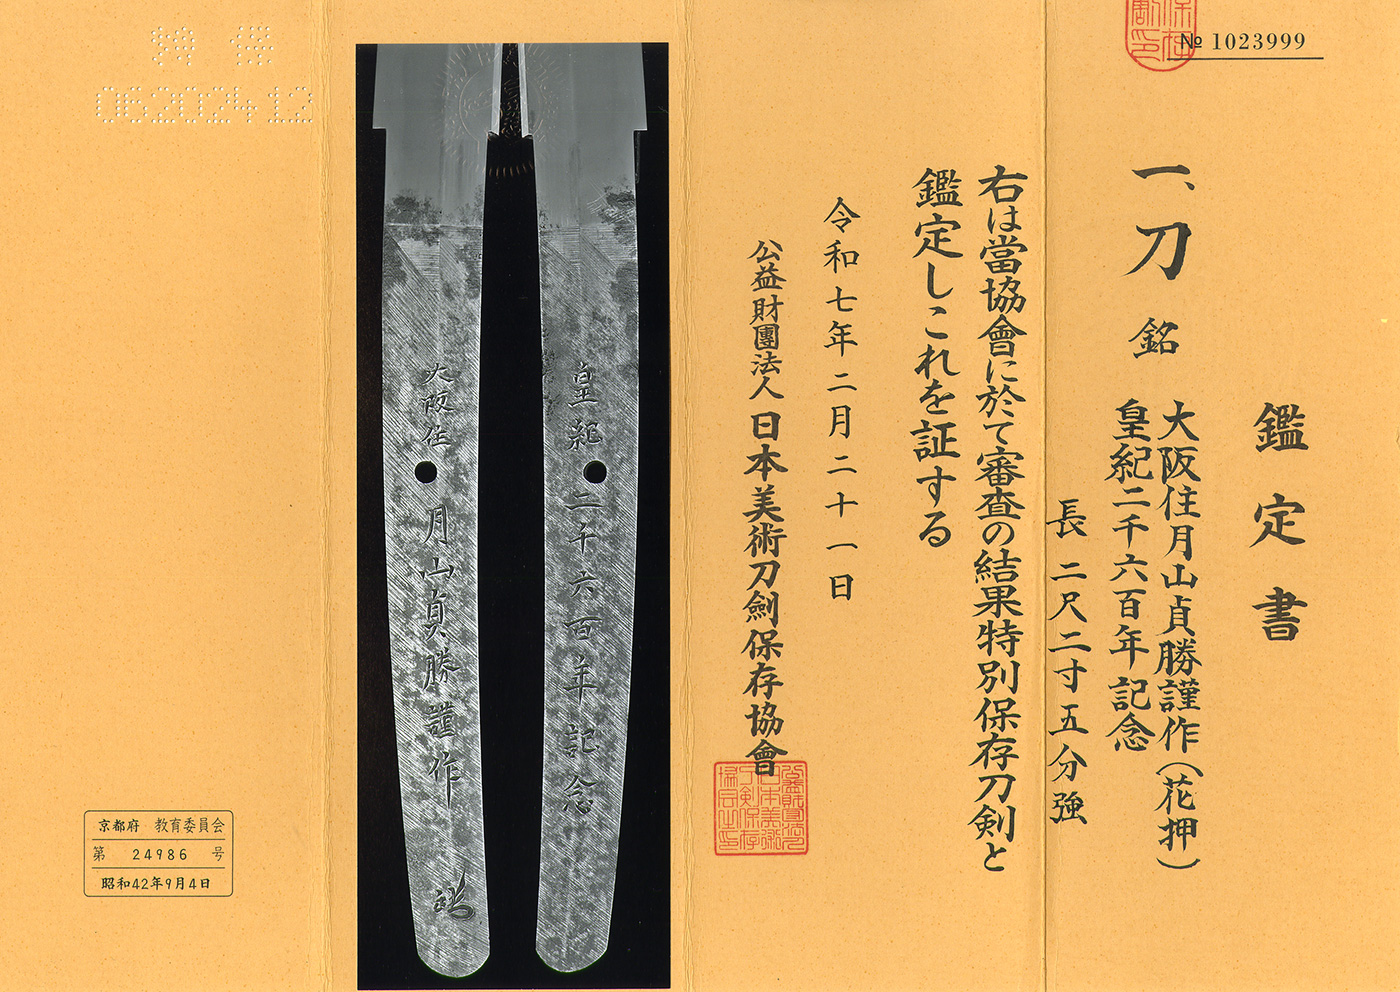 № 1023999
鑑定書
一、刀 銘 大阪住月山貞勝謹作(花押)
皇紀二千六百年記念
長 二尺二寸五分強
右は當協會に於て審査の結果特別保存刀剣と
鑑定しこれを証する
令和七年二月二十一日
公益財團法人 日本美術刀劍保存協會
皇紀二千六百年記念
大阪住月山貞勝謹作
特保
06202412
京都府 教育委員会
第 24986 号
昭和42年9月4日